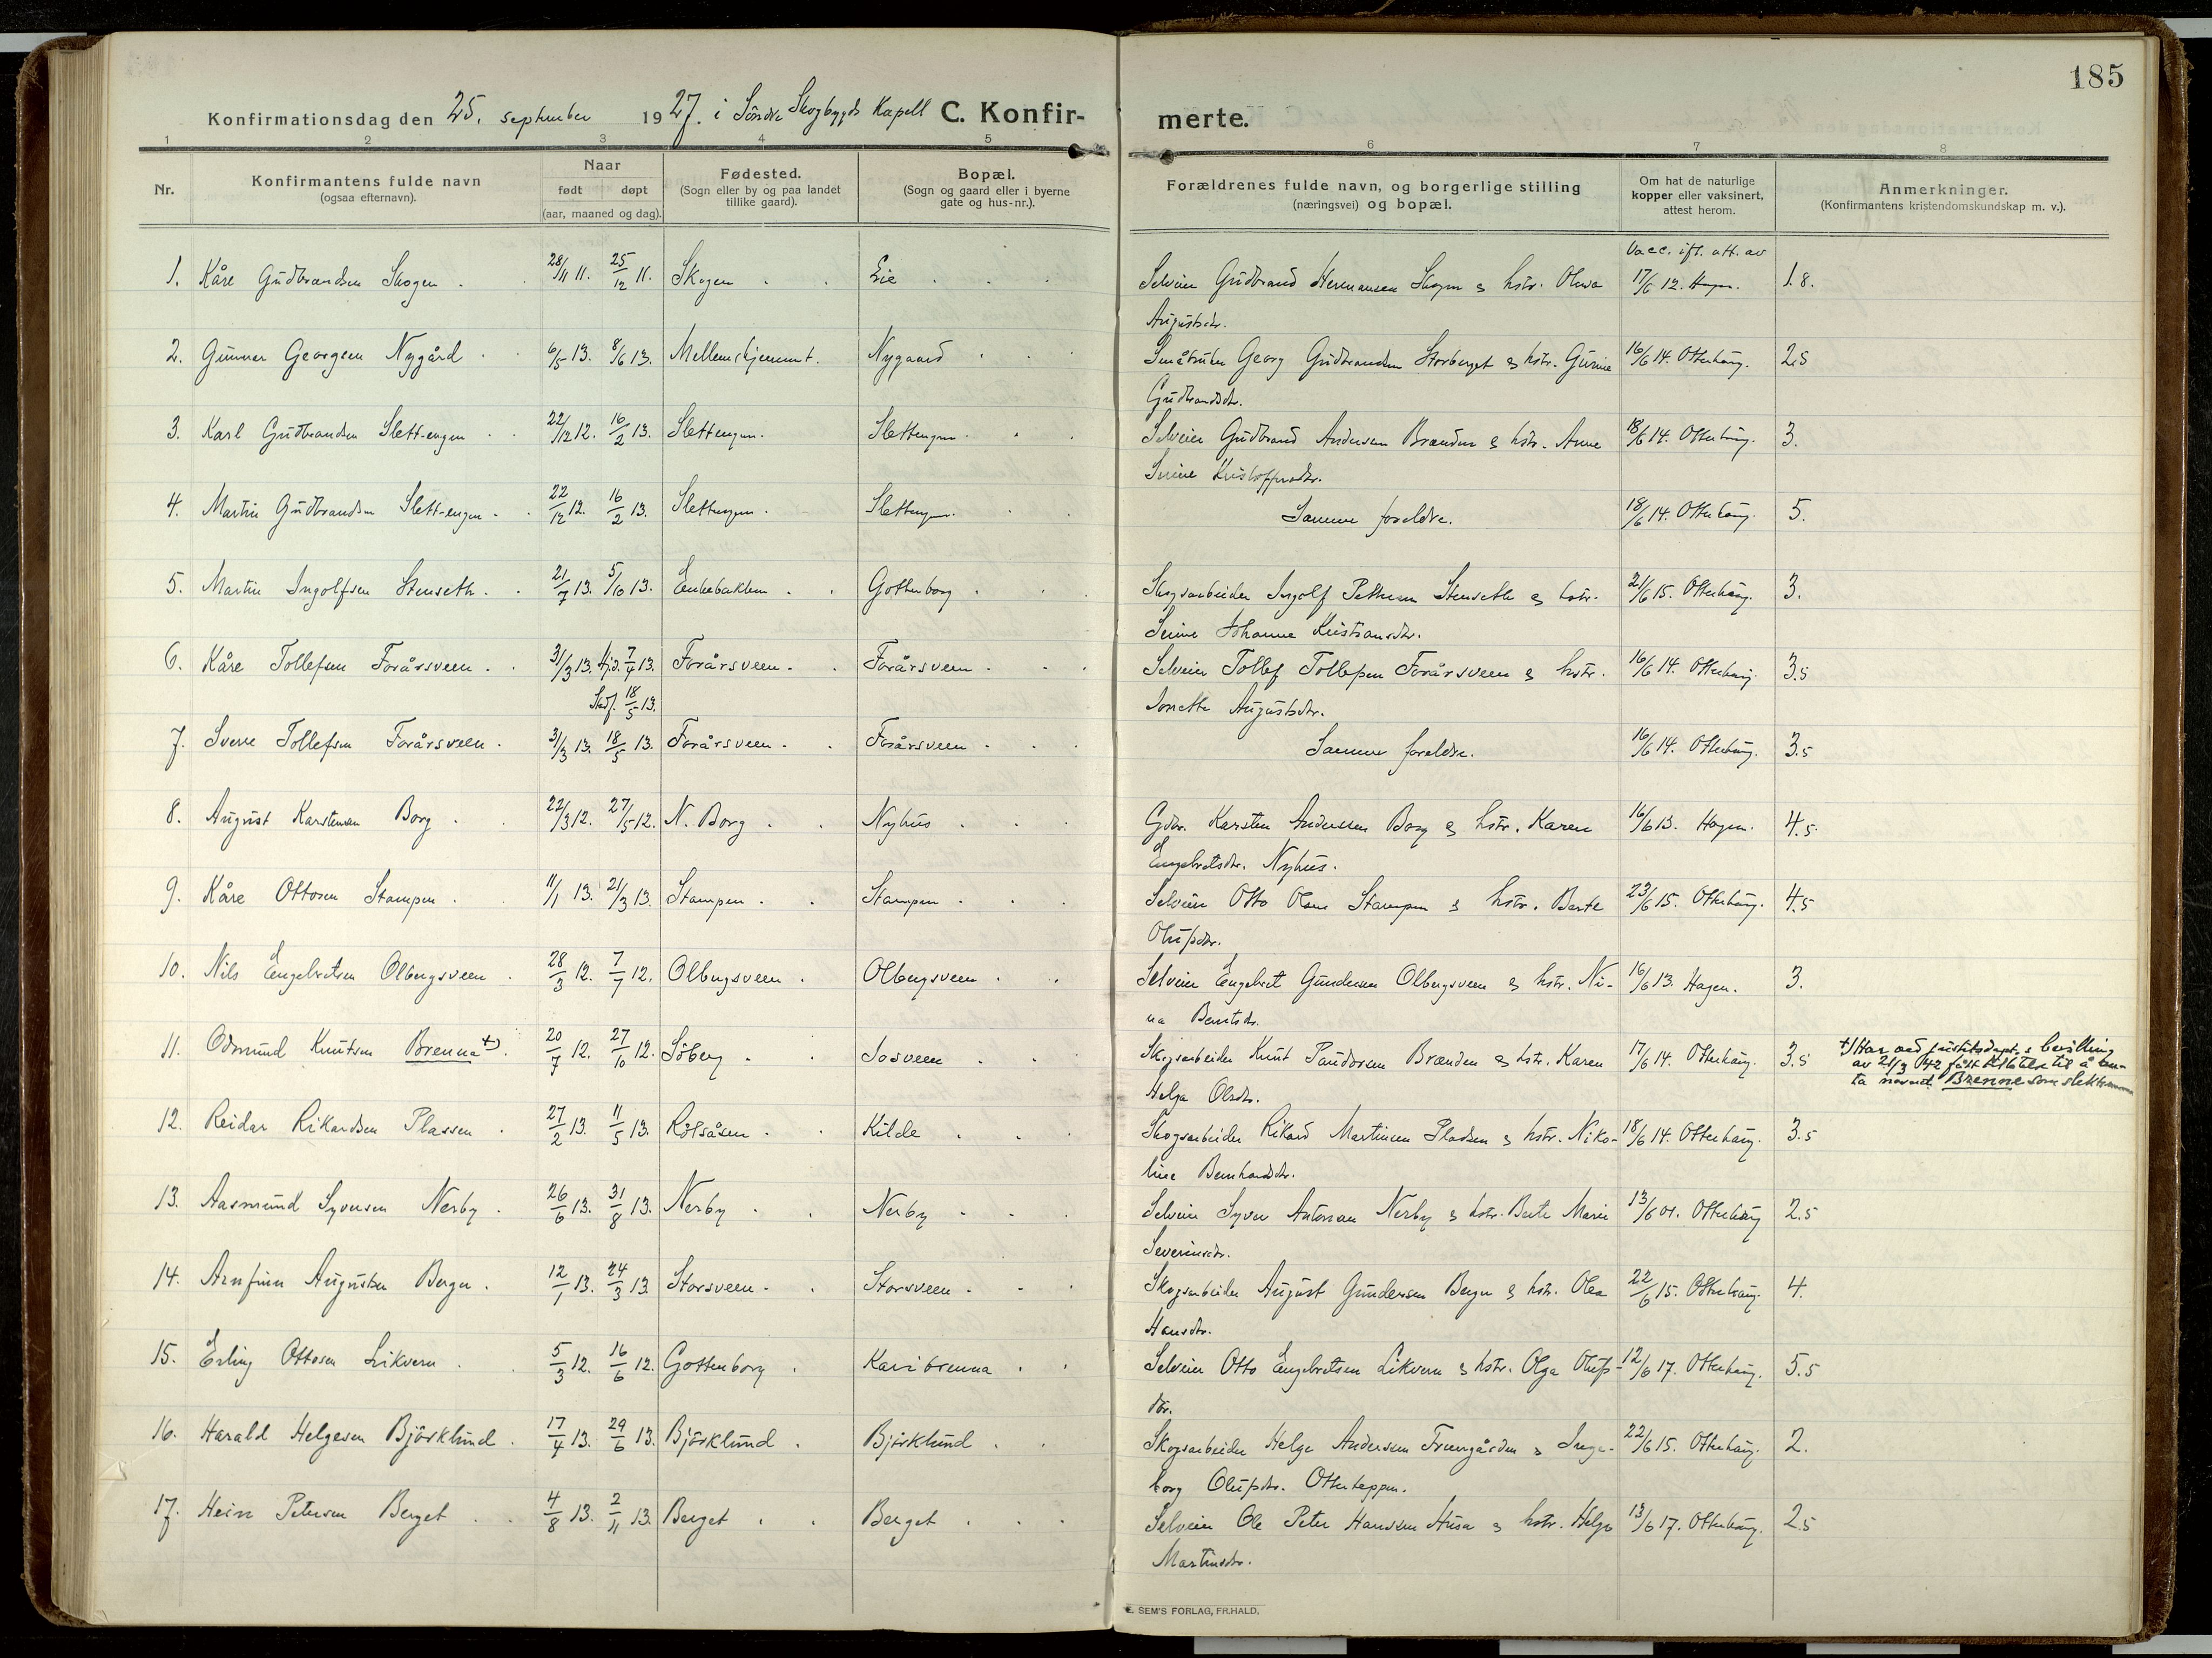 185
Konfirmationsdag den 25. september 1927. i Söndre Skogbygds Kapell C. Konfirmerte.
1 2 3 4 5 6 7 8
Nr.
Konfirmantens fulde navn
(ogsaa efternavn).
Naar
født døpt
(aar, maaned og dag).
Fødested.
(Sogn eller by og paa landet
tillike gaard).
Bopæl.
(Sogn og gaard eller i byerne
gate og hus-nr.).
Forældrenes fulde navn, og borgerlige stilling
(næringsvei) og bopæl.
Om hat de naturlige
kopper eller vaksinert,
attest herom.
Anmerkninger.
(Konfirmantens kristendomskundskap m. v.).
Vacc. ifl. att. av
1. Kåre Gudbrandsen Skogen. 28/11 11. 25/12 11. Skogen Lie Selveier Gudbrand Hermansen Skogen & hstr. Olava 17/6 12. Hagen. 1.8.
Augustsdtr.
2. Gunnar Georgsen Nygård 6/5 13. 8/6 13. Mellemskjemmt. Nygaard Småbruker Georg Gudbrandsen Storberget & hstr. Gurine 16/6 14. Otterhaug. 2.5
Gudbrandsdtr.
3. Karl Gudbrandsen Slett-engen 22/12 12. 16/2 13. Slettengen. Slettengen. Selveier Gudbrand Andersen Brænden & hstr. Anne 18/6 14. Otterhaug. 3.
Serine Kristoffersdtr.
4. Martin Gudbrandsen Slett-engen 22/12 12. 16/2 13. Slettengen. Slettengen. Samme foreldre. 18/6 14. Otterhaug. 5.
5. Martin Ingolfsen Stenseth. 21/7 13. 5/10 13. Enkebakken Gottenborg Skogsarbeider Ingolf Pettersen Stenseth & hstr. 21/6 15. Otterhaug. 3.
Serine Johanne Kristiansdtr.
6. Kåre Tollefsen Forårsveen. 31/3 13. Hjd. 7/4 13. Forårsveen. Forårsveen. Selveier Tollef Tollefsen Forårsveen & hstr. 16/6 14. Otterhaug. 3.5
Stadf. 18/5 13. Josette Augustsdtr.
7. Sverre Tollefsen Forårsveen. 31/3 13. 18/5 13. Forårsveen. Forårsveen. Samme foreldre. 16/6 14. Otterhaug. 3.5
8. August Karstensen Borg 22/3 12. 27/5 12. N. Borg Nyhus Gdbr. Karsten Anderssen Borg & hstr. Karen 16/6 13. Hagen. 4.5
Engebretsdtr. Nyhus.
9. Kåre Ottosen Stampen 11/1 13. 21/3 13. Stampen. Stampen Selveier Otto Olsen Stampen & hstr. Berte 23/6 15. Otterhaug. 4.5
Olufsdtr.
10. Nils Engebretsen Olbergsveen 28/3 12. 7/7 12. Olbergsveen Olbergsveen Selveier Engebret Gundersen Olbergsveen & hstr. Ni- 16/6 13. Hagen. 3.
na Berntsdtr.
11. Odmund Knutsen Brenna +) 20/7 12. 27/10 12. Söberg Josveen Skogsarbeider Knut Paudorsen Brænden & hstr. Karen 17/6 14. Otterhaug. 3.5 +) Har ved justitsdept.s bevilling
av 21/3 1942 fått tillatelse til å an-
ta navnet Brenne som slektsnavn
Helga Olsdtr.
12. Reidar Rikardsen Plassen 27/2 13. 11/5 13. Rölsåsen Kilde Skogsarbeider Rikard Martinsen Pladsen & hstr. Niko- 18/6 14. Otterhaug. 3.5
line Bernhardsdtr.
13. Aasmund Syversen Nerby 26/6 13. 31/8 13. Nerby Nerby Selveier Syver Antonsen Nerby & hstr. Berte Marie 13/6 01. Otterhaug 2.5
Severinsdtr.
14. Arnfinn Augustsen Berger 12/1 13. 24/3 13. Storsveen Storsveen Skogsarbeider August Gundersen Berger & hstr. Olea 22/6 15. Otterhaug. 4.
Hansdtr.
15. Erling Ottosen Likvern 5/3 12. 16/6 12. Gottenborg Karibrenna Selveier Otto Engebretsen Likvern & hstr. Olga Olufs- 12/6 17. Otterhaug. 5.5
dtr.
16. Harald Helgesen Björklund 17/4 13. 29/6 13. Björklund Björklund Skogsarbeider Helge Andersen Truengården & Inge- 22/6 15. Otterhaug. 2.
borg Olufsdtr. Ottertappen.
17. Hein Petersen Berget 4/8 13. 2/11 13. Berget Berget Selveier Ole Peter Hanssen Husa & hstr. Helga 13/6 17. Otterhaug. 2.5
Martinsdtr.
E. SEM'S FORLAG, FR.HALD.